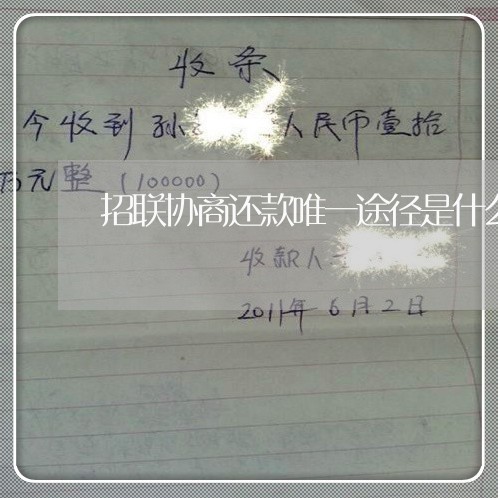 收条
今收到孙 人民币壹拾
万元整(100000)
招联协商还款唯一途径是什么
收款人
2011年6月2日